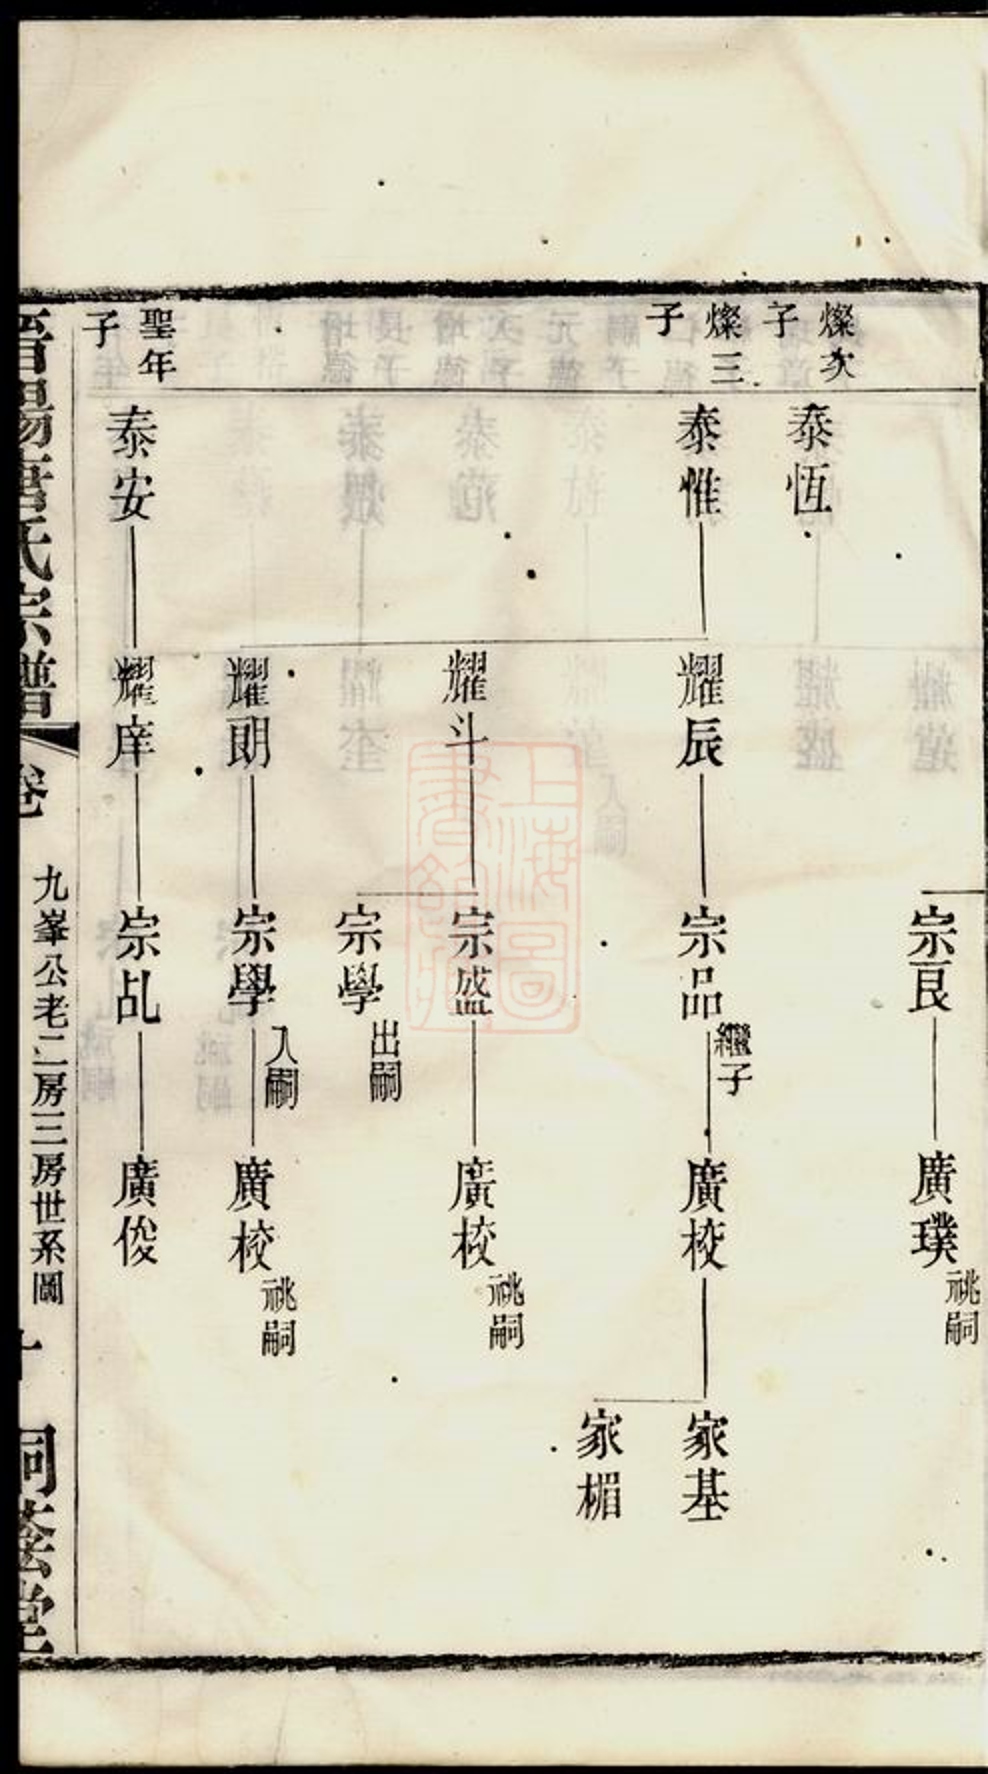 宗良
廣璞
祧嗣
燦次
子
泰恆
燦三
子
泰惟
耀辰
宗品
繼子
廣校
家基
家楣
耀斗
宗盛
廣校
祧嗣
宗學
出嗣
耀朗
宗學
入嗣
廣校
祧嗣
聖年
子
泰安
耀庠
宗乩
廣俊
氏宗譜
卷
九峯公老二房三房世系圖
十
上海圖
書館藏